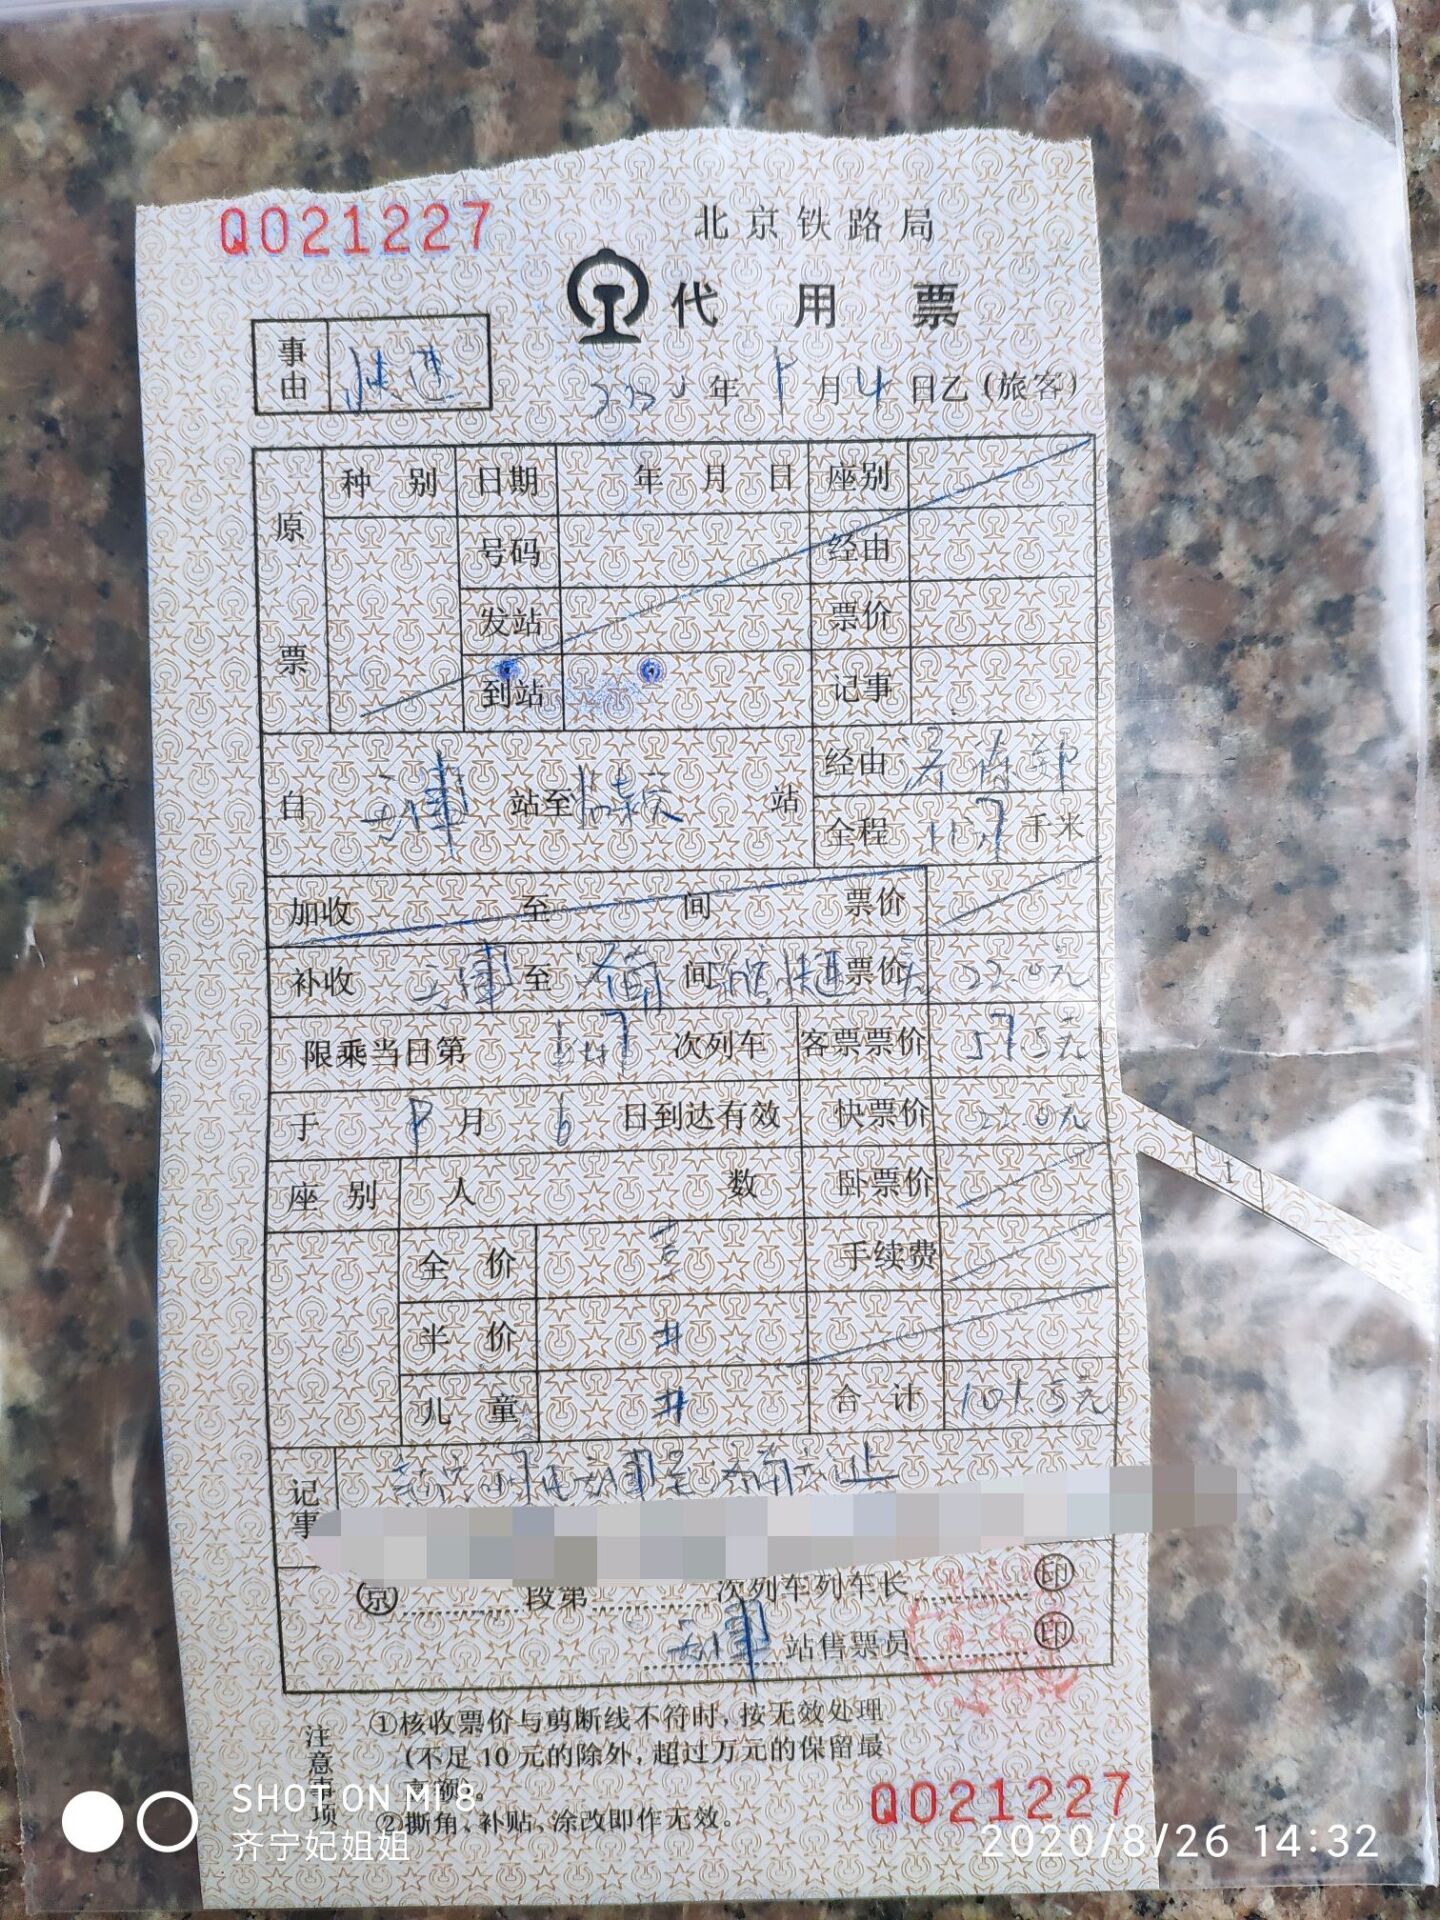 Q021227
北京铁路局
代用票
事由
年 月 4 日乙(旅客)
原票 种别 日期 年 月 日 座别
号码 经由
发站 票价
到站 记事
自 天津 站至 站 经由
全程 千米
加收 至 间 票价
补收 天津 至 济南 间 票价 22.0元
限乘当日第 次列车 客票票价 57.5元
于 月 6 日到达有效 快票价 22.0元
座别 人数 卧票价
全价 手续费
半价 #
儿童 # 合计 101.5元
记事
京 段第 次列车列车长 印
天津 站售票员 印
注意事项
①核收票价与剪断线不符时,按无效处理
(不足10元的除外,超过万元的保留最
高额)。
②撕角、补贴、涂改即作无效。
Q021227
SHOT ON MI 8
齐宁妃姐姐
2020/8/26 14:32